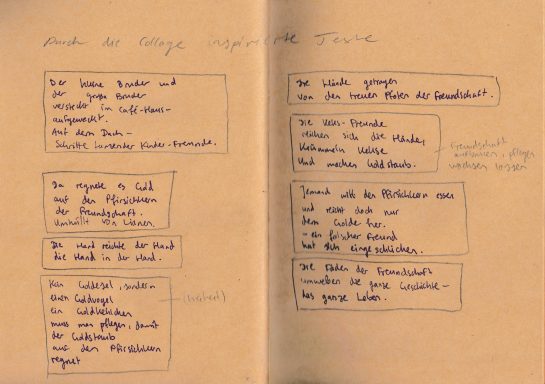 Durch die Collage inspirierte Texte
Der kleine Bruder und
der große Bruder
versteckt im Café-Haus-
aufgeweckt.
Auf dem Dach –
Schritte tausender Kinder-Freunde.
Da regnete es Gold
auf den Pfirsichkern
der Freundschaft.
Umhüllt von Lianen.
Die Hand reichte der Hand
die Hand in der Hand.
Kein Goldegel, sondern
einen Goldvogel
ein Goldkehlchen
muss man pflegen, damit
der Goldstaub
auf den Pfirsichkern
regnet
Die Hände getragen
von den treuen Pfoten der Freundschaft.
Die Keks-Freunde
reichen sich die Hände,
krümmeln Kekse
und machen Goldstaub.
Freundschaft
aufbauen, pflegen
wachsen lassen
Jemand will den Pfirsichkern essen
und reicht doch nur
dem Golde her.
– ein falscher Freund
hat sich eingeschlichen.
Die Fäden der Freundschaft
umweben die ganze Geschichte –
das ganze Leben.